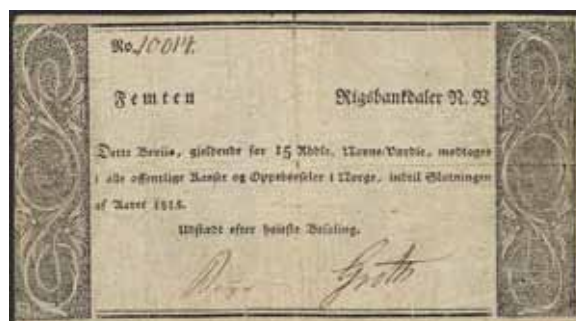 No. 10014.
Femten Rigsbankdaler N. V
Dette Beviis, gjeldende for 15 Rbdlr. Navne-Værdie, modtages
i alle offentlige Kasser og Oppebørseler i Norge, indtil Slutningen
af Aaret 1815.
Udstædt efter høieste Befaling.
Groth